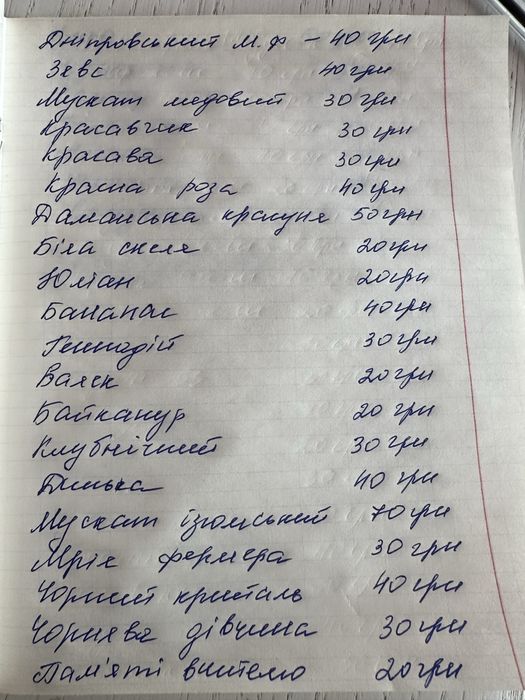 Дніпровський м.ф - 40 грн
Зевс 40 грн
Мускат медовий 30 грн
Красавчик 30 грн
Красава 30 грн
Красна роза 40 грн
Даманська красуня 50 грн
Біла скеля 20 грн
Юліан 20 грн
Бананас 40 грн
Геннадій 30 грн
Ваяск 20 грн
Байканур 20 грн
Клубнічний 30 грн
Динька 40 грн
Мускат ізюмський 70 грн
Мрія фермера 30 грн
Чорний кристаль 40 грн
Чорнява дівчина 30 грн
Пам'яті вчителю 20 грн